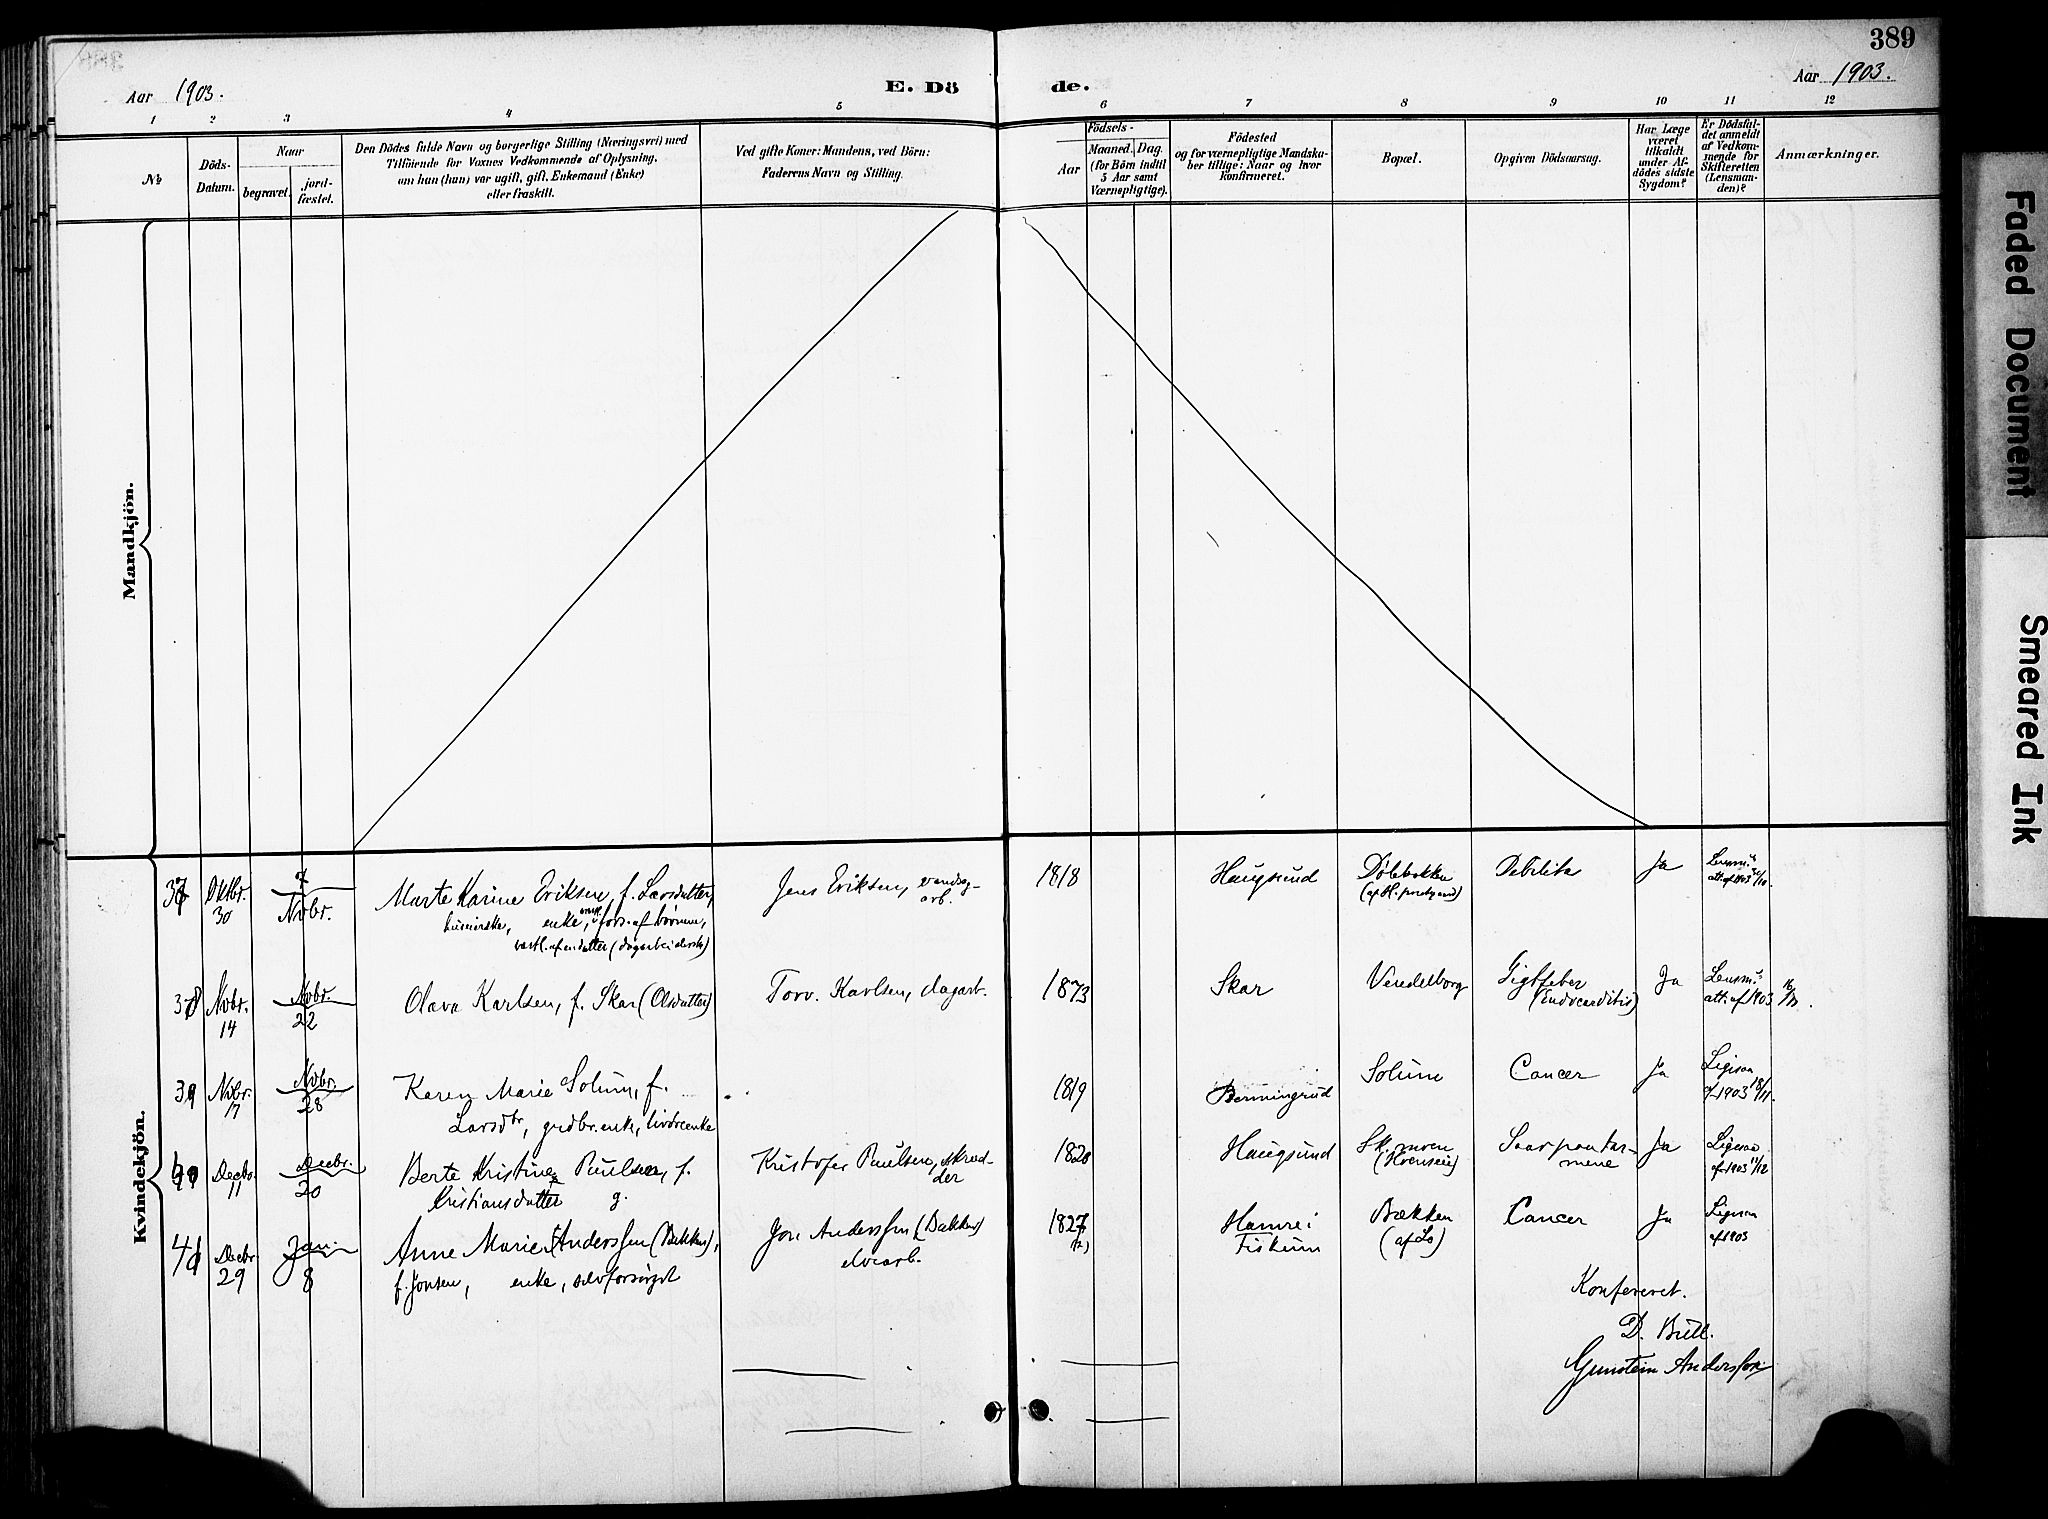 389
Aar 1903.
E. Dö
de.
Aar 1903.
1 2 3 4 5 6 7 8 9 10 11 12
№
Döds-
Datum.
Naar
begravet.
jord-
fæstet.
Den Dödes fulde Navn og borgerlige Stilling (Næringsvei) med
Tilföiende for Voxnes Vedkommende af Oplysning,
om han (hun) var ugift, gift, Enkemand (Enke)
eller fraskilt.
Ved gifte Koner: Mandens, ved Börn:
Faderens Navn og Stilling.
Födsels-
Aar
Maaned. Dag.
(for Börn indtil
5 Aar samt
Værnepligtige).
Födested
og for værnepligtige Mandska-
ber tillige: Naar og hvor
konfirmeret.
Bopæl.
Opgiven Dödsaarsag.
Har Læge
været
tilkaldt
under Af-
dödes sidste
Sygdom?
Er Dödsfal-
det anmeldt
af Vedkom-
mende for
Skifteretten
(Lensman-
den)?
Anmærkninger.
Mandkjön.
Kvindekjön.
37 Oktbr. 30
7 Novbr.
Marte Karine Eriksen, f. Larsdatter,
enke, fors. af børnene,
Jens Eriksen,
arb.
1818
Haugsund
Debilitas
Ja
38 Novbr. 14
Novbr. 22
Olava Karlsen, f. Skar (Olsdatter)
Torv. Karlsen, dagarb.
1873
Skar
Vendelborg
Gigtfeber
(Endocarditis)
Ja
Lensm.s
att. af 1903 16/
39 Novbr. 17
Novbr. 28
Karen Marie Solum, f.
Larsdtr, grdbr.enke,
1819
Solum
Cancer
Ja
af 1903 18/11.
40 Decbr. 11
Decbr. 20
Berte Kristine Paulsen, f.
Kristiansdatter g.
Kristofer Paulsen, skræd-
der
1820
Haugsund
Ja
af 1903 11/12
41 Decbr 29
Jan. 8
Anne Marie Anderssen (Bækken),
f. Jonsen, enke, selvforsørget
Jon Anderssen (Bækken)
elvearb.
1827
Hamre i
Fiskum
Bækken
(af Lo)
Cancer
Ja
af 1903
Konfereret.
D. Bull.
Gunstein Anderssen
Faded Document
Smeared Ink